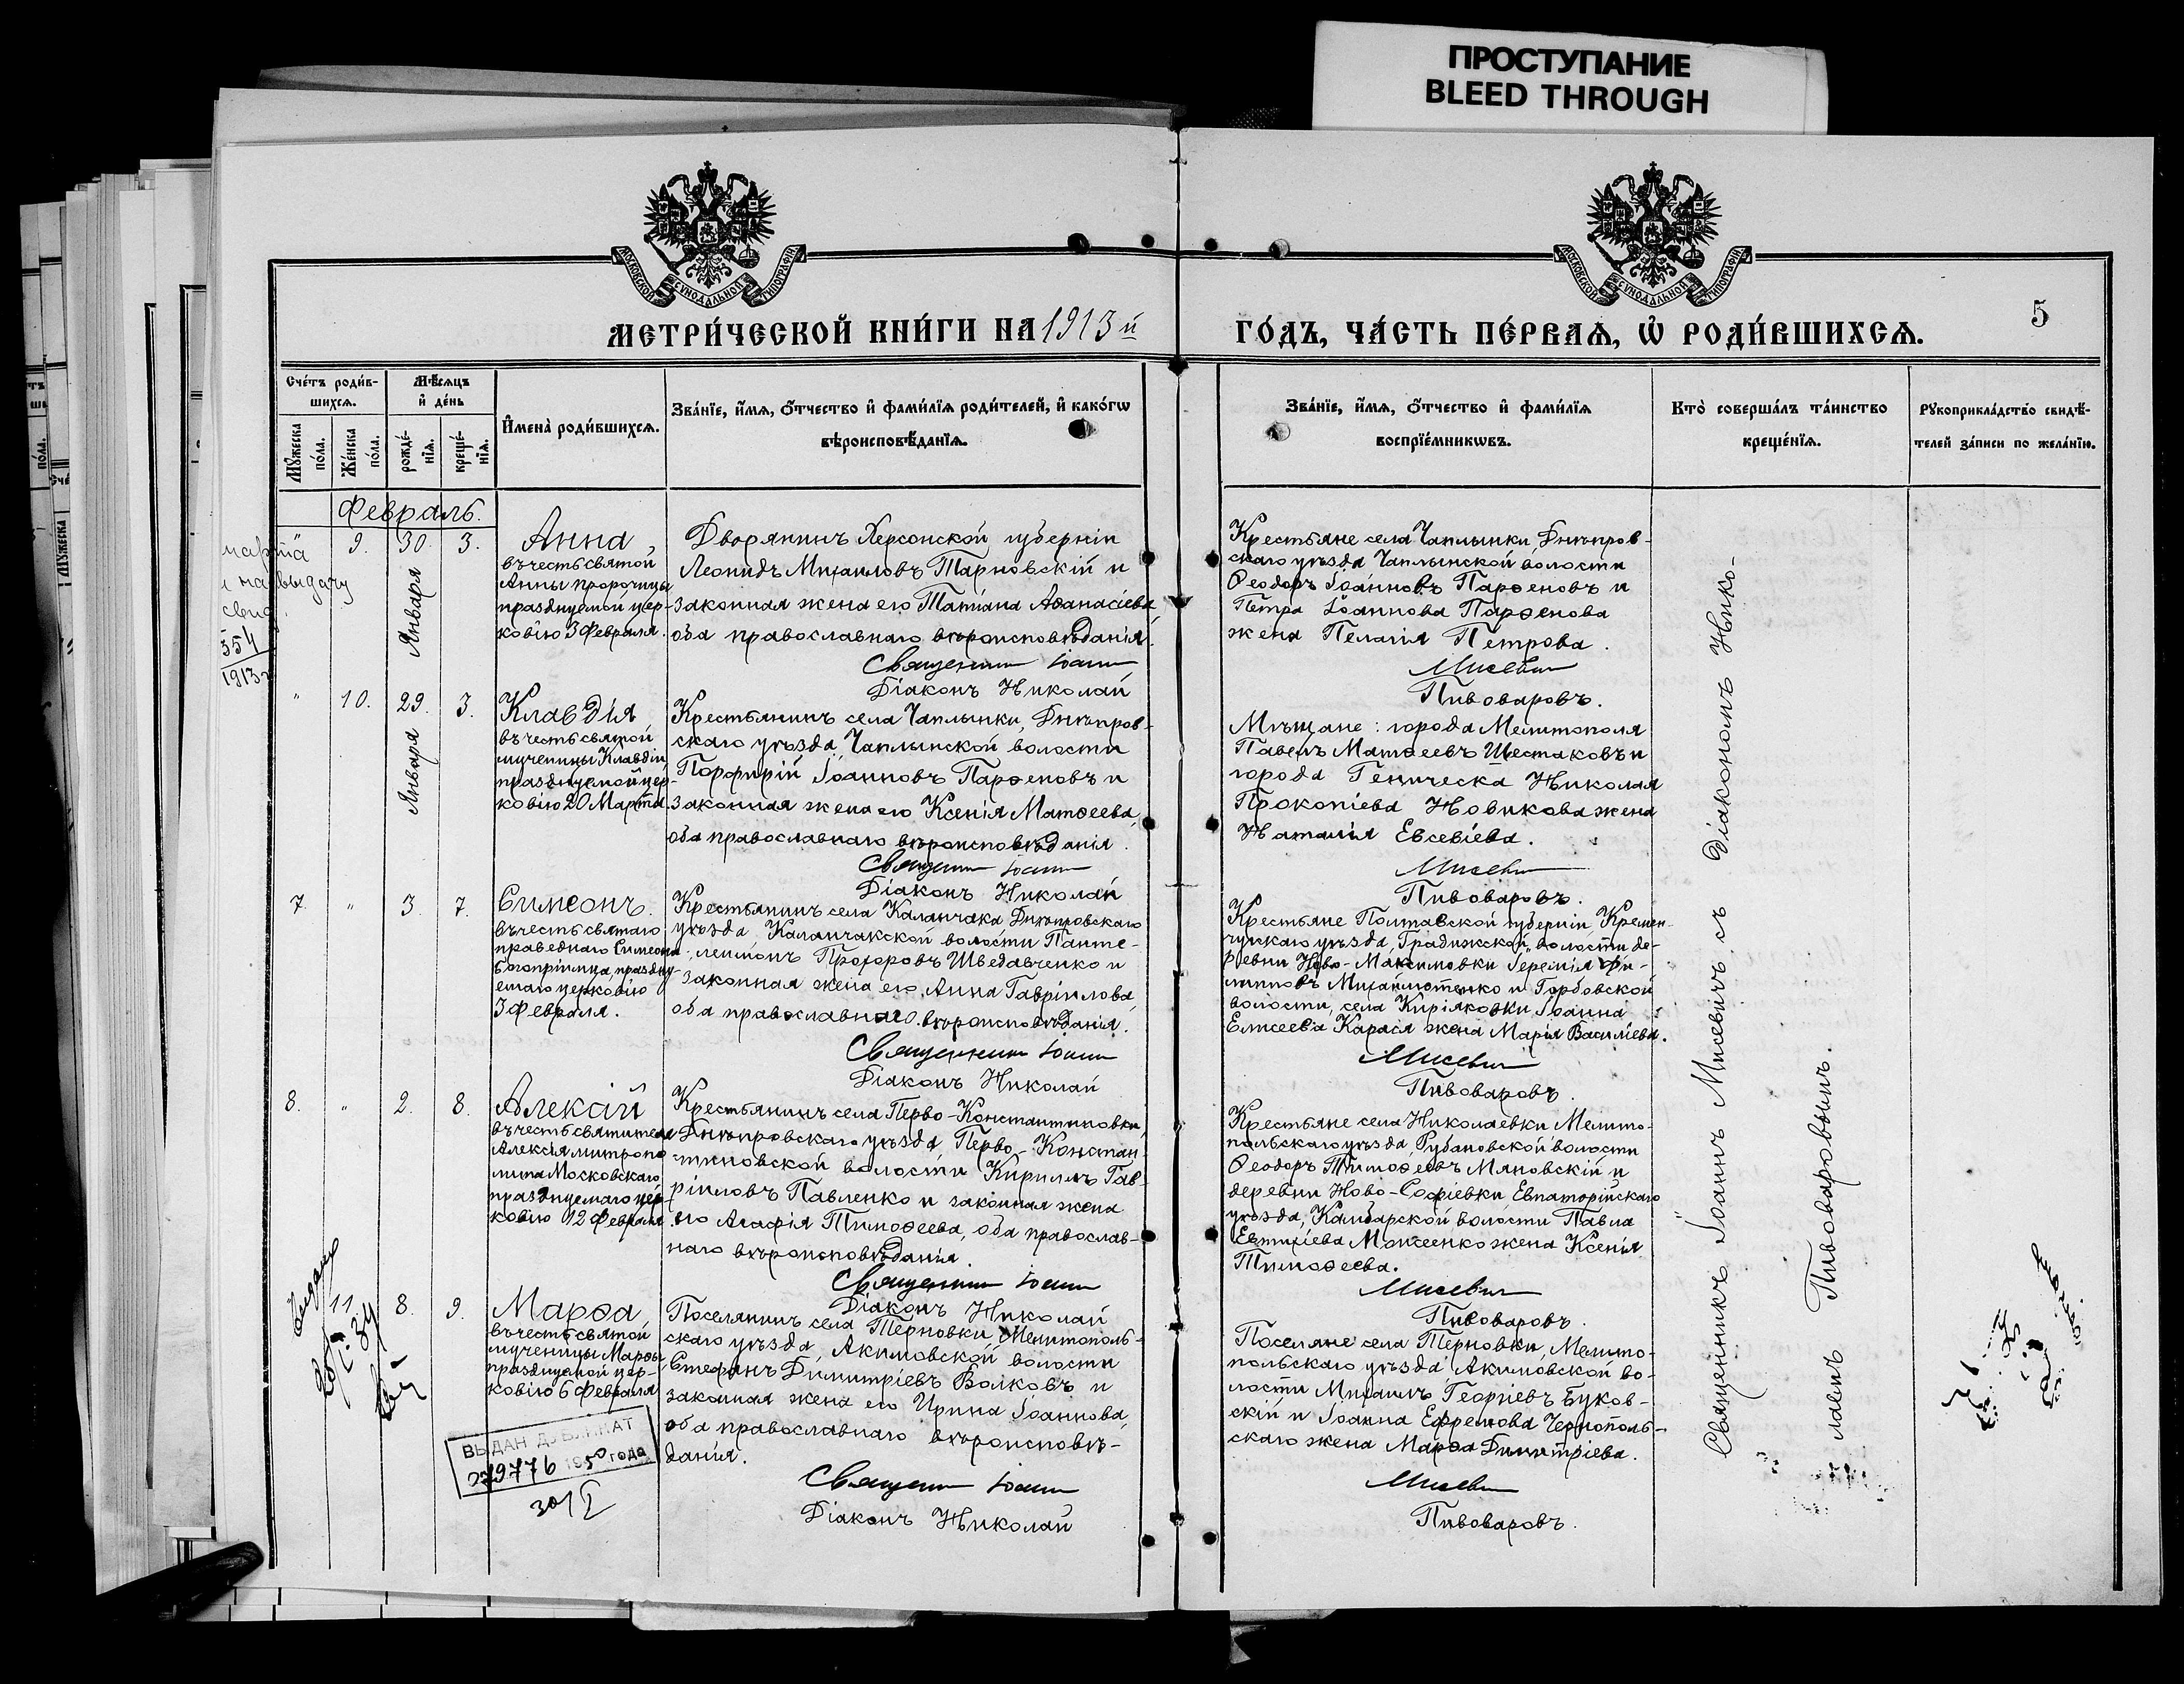 ПРОСТУПАНИЕ
BLEED THROUGH
МОСКОВСКОЙ СУНОДАЛЬНОЙ ТИПОГРАФІИ.
МОСКОВСКОЙ СУНОДАЛЬНОЙ ТИПОГРАФІИ.
МЕТРИ́ЧЕСКОЙ КНИ́ГИ НА 1913 й
ГО́ДЪ, ЧА́СТЬ ПЕ́РВАЯ, Ѿ РОДИ́ВШИХСЯ.
5
Сче́тъ роди́в-
шихся.
Му́жеска
по́ла.
Же́нска
по́ла.
Мѣ́сяцъ
и҆ де́нь
рожде́-
нїя.
креще́-
нїя.
И҆мена̀ роди́вшихся.
Зва́нїе, и҆́мя, ѻ҆́тчество и҆ фами́лїя роди́телей, и҆ како́гѡ
вѣроисповѣ́данїя.
Зва́нїе, и҆́мя, ѻ҆́тчество и҆ фами́лїя
воспрїе́мникѡвъ.
Кто̀ соверша́лъ та́инство
креще́нїя.
Рукоприкла́дство свидѣ́-
телей за́писи по жела́нїю.
Февраль.
марта
на выдачу
свид.
554
1913 г
" 9. 30. 3.
Января
Анна,
въ честь святой
Анны пророчицы
празднуемой цер-
ковію 3 Февраля.
Дворянинъ Херсонской губерніи
Леонидъ Михаиловъ Тарновскій и
законная жена его Татіана Аѳанасіева
оба православнаго вѣроисповѣданія.
Священникъ Іоаннъ
Діаконъ Николай
Крестьяне села Чаплынки, Днѣпров-
скаго уѣзда Чаплынской волости
Ѳеодоръ Іоанновъ Парѳеновъ и
Петра Іоаннова Парѳенова
жена Пелагія Петрова.
Мисевич
Пивоваровъ.
" 10. 29. 3.
Января
Клавдія,
въ честь святой
мученицы Клавдіи,
празднуемой цер-
ковію 20 Марта.
Крестьянинъ села Чаплынки, Днѣпров-
скаго уѣзда, Чаплынской волости
Порфирій Іоанновъ Парѳеновъ и
законная жена его Ксенія Матѳеева,
оба православнаго вѣроисповѣданія.
Священникъ Іоаннъ
Діаконъ Николай
Мѣщане: города Мелитополя
Павелъ Матѳеевъ Шестаковъ и
города Геническа Николая
Прокопіева Новикова жена
Наталія Евсевіева.
Мисевич
Пивоваровъ.
7. " 3. 7.
Симеонъ.
въ честь святаго
праведнаго Симеона
Богопріимца, праздну-
емаго церковію
3 Февраля.
Крестьянинъ села Каланчака Днѣпровскаго
уѣзда, Каланчакской волости Панте-
леимонъ Прохоровъ Шведавченко и
законная жена его Анна Гавріилова,
оба православнаго вѣроисповѣданія.
Священникъ Іоаннъ
Діаконъ Николай
Крестьяне Полтавской губерніи, Кремен-
чугскаго уѣзда, Градижской волости де-
ревни Ново-Максимовки Іеремія Фи-
липповъ и Горбовской
волости, села Киріяковки Іоанна
Елисеева Карася жена Марія Василіева.
Мисевич
Пивоваровъ.
8. " 2. 8.
Алексій
въ честь святителя
Алексія митропо
лита Московскаго
празднуемаго цер-
ковію 12 Февраля
Крестьянинъ села Перво-Константиновки,
Днѣпровскаго уѣзда, Перво-Констан-
тиновской волости Кириллъ Гав-
ріиловъ Павленко и законная жена
его Агафія Тимоѳеева, оба православ-
наго вѣроисповѣданія.
Священникъ Іоаннъ
Діаконъ Николай
Крестьяне села Николаевки Мелито-
польскаго уѣзда, Рубановской волости
Ѳеодоръ Тимоѳеевъ Мяновскій и
деревни Ново-Софіевки Евпаторійскаго
уѣзда, Камбарской волости Павла
Евтихіева жена Ксенія
Тимоѳеева.
Мисевич
Пивоваровъ.
11. 8. 9.
Марѳа
въ честь святой
мученицы Марѳы
празднуемой цер-
ковію 6 Февраля
Поселянинъ села Терновки Мелитополь-
скаго уѣзда, Акимовской волости
Стефанъ Димитріевъ Волковъ и
законная жена его Ирина Іоаннова,
оба православнаго вѣроисповѣ-
данія.
Священникъ Іоаннъ
Діаконъ Николай
Поселяне села Терновки, Мелито-
польскаго уѣзда Акимовской во-
лости Михаилъ Георгіевъ Буков-
скій и Іоанна Ефремова Чернополь-
скаго жена Марѳа Димитріева.
Мисевич
Пивоваровъ.
ВЫДАН ДУБЛИКАТ
279776 1950 года
Священникъ Іоаннъ Мисевичъ съ діакономъ Нико-
лаемъ Пивоваровымъ.